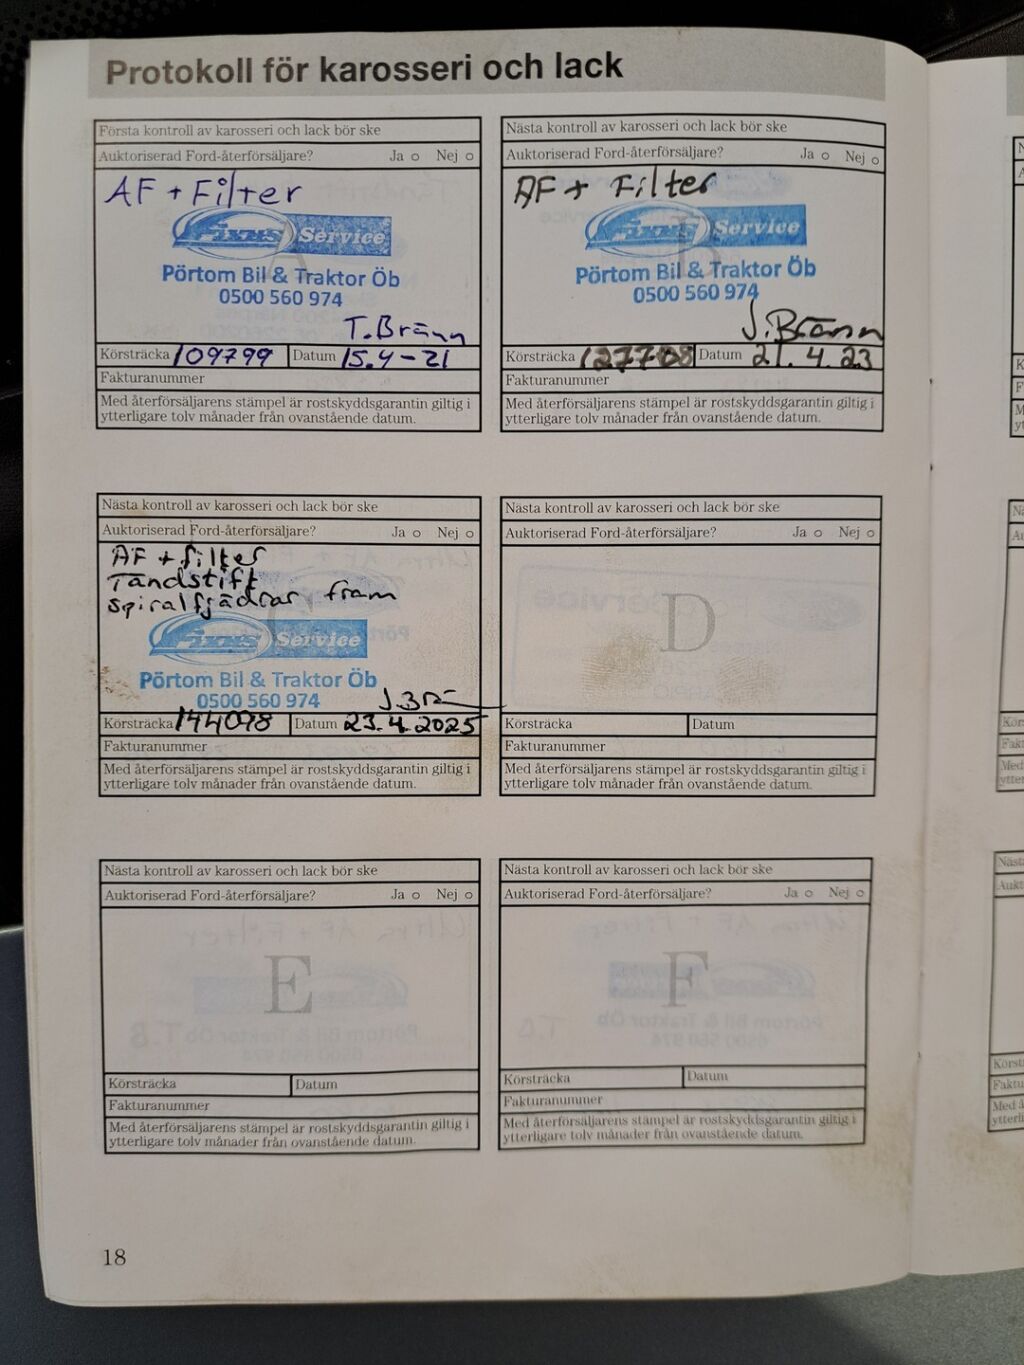 Protokoll för karosseri och lack
Första kontroll av karosseri och lack bör ske
Auktoriserad Ford-återförsäljare? Ja o Nej o
AF + Filter
FIXUS Service
Pörtom Bil & Traktor Öb
0500 560 974
T. Bränn
Körsträcka 109799 Datum 15.4-21
Fakturanummer
Med återförsäljarens stämpel är rostskyddsgarantin giltig i
ytterligare tolv månader från ovanstående datum.
Nästa kontroll av karosseri och lack bör ske
Auktoriserad Ford-återförsäljare? Ja o Nej o
AF + Filter
B
FIXUS Service
Pörtom Bil & Traktor Öb
0500 560 974
J. Bränn
Körsträcka 127708 Datum 21.4.23
Fakturanummer
Med återförsäljarens stämpel är rostskyddsgarantin giltig i
ytterligare tolv månader från ovanstående datum.
Nästa kontroll av karosseri och lack bör ske
Auktoriserad Ford-återförsäljare? Ja o Nej o
AF + filter
Tändstift
Spiralfjädrar fram
C
FIXUS Service
Pörtom Bil & Traktor Öb
0500 560 974
Körsträcka 144098 Datum 23.4.2025
Fakturanummer
Med återförsäljarens stämpel är rostskyddsgarantin giltig i
ytterligare tolv månader från ovanstående datum.
Nästa kontroll av karosseri och lack bör ske
Auktoriserad Ford-återförsäljare? Ja o Nej o
D
Körsträcka Datum
Fakturanummer
Med återförsäljarens stämpel är rostskyddsgarantin giltig i
ytterligare tolv månader från ovanstående datum.
Nästa kontroll av karosseri och lack bör ske
Auktoriserad Ford-återförsäljare? Ja o Nej o
E
Körsträcka Datum
Fakturanummer
Med återförsäljarens stämpel är rostskyddsgarantin giltig i
ytterligare tolv månader från ovanstående datum.
Nästa kontroll av karosseri och lack bör ske
Auktoriserad Ford-återförsäljare? Ja o Nej o
F
Körsträcka Datum
Fakturanummer
Med återförsäljarens stämpel är rostskyddsgarantin giltig i
ytterligare tolv månader från ovanstående datum.
18